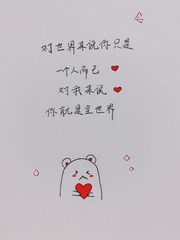 对世界来说你只是
一个人而已
对我来说
你就是全世界